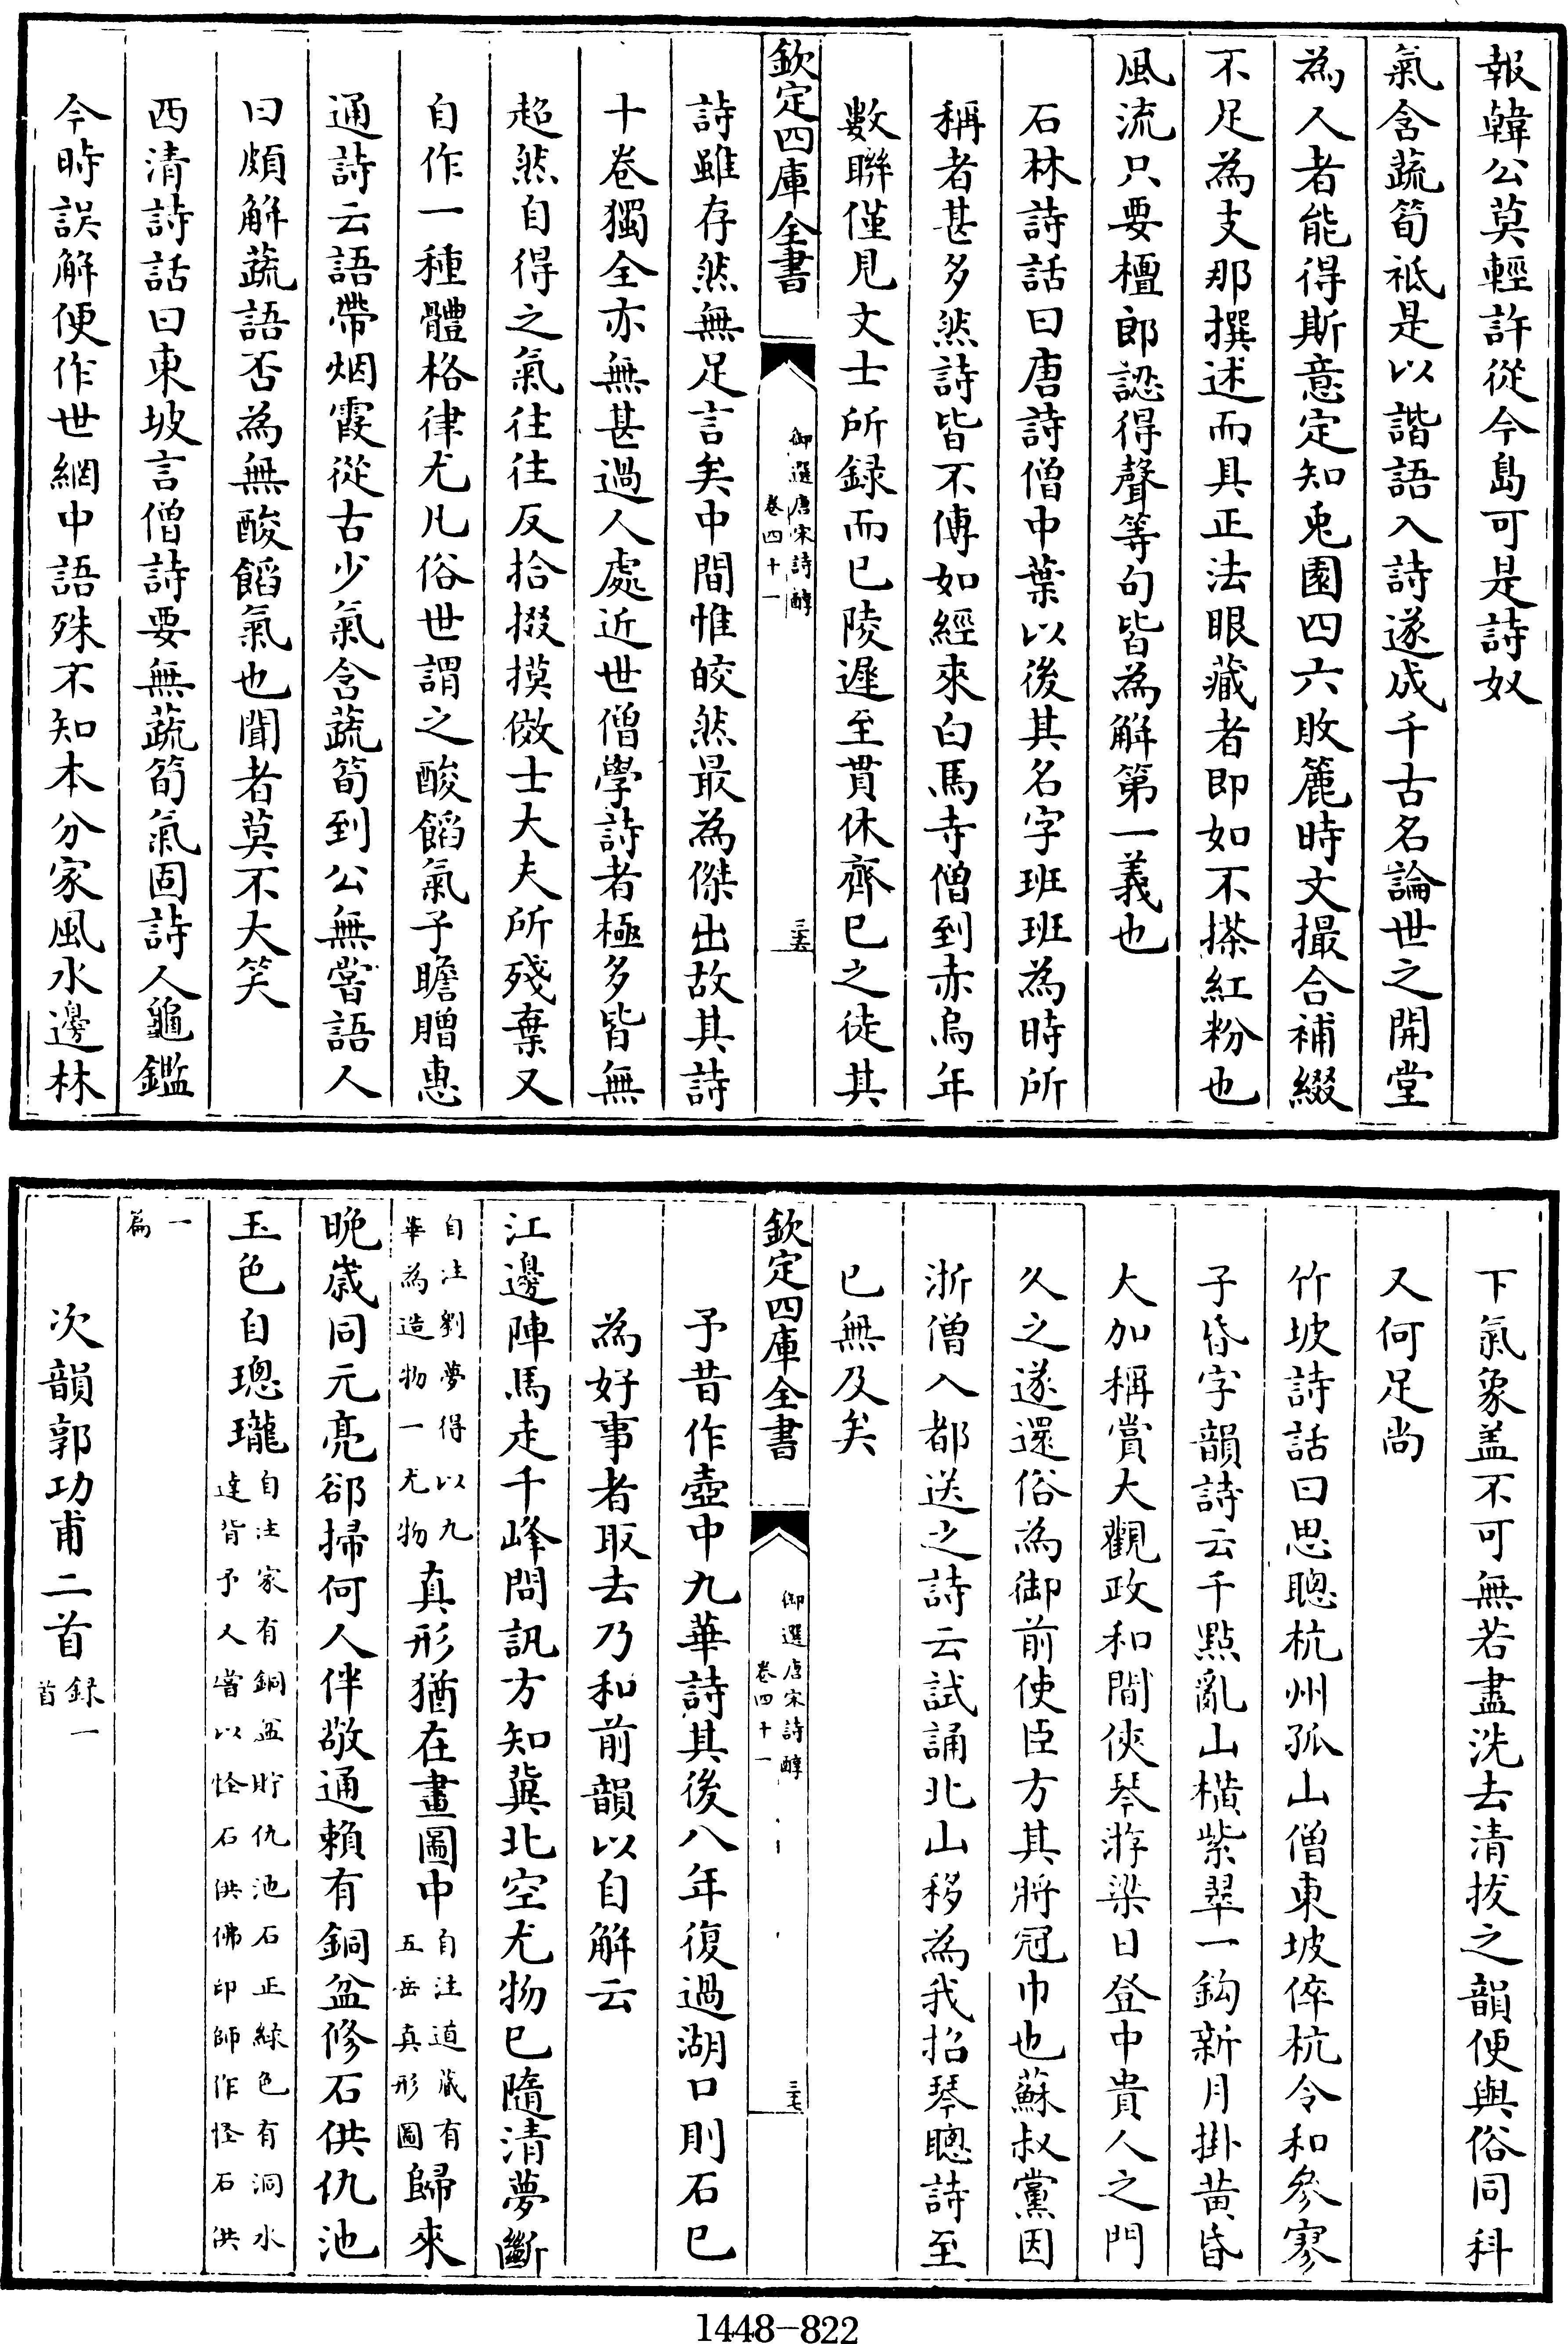 報韓公莫輕許從今島可是詩奴
氣含蔬筍祗是以諧語入詩遂成千古名論世之開堂
為人者能得斯意定知兎園四六敗簏時文撮合補綴
不足為支那撰述而具正法眼藏者即如不搽紅粉也
風流只要檀郎認得聲等句皆為解第一義也
石林詩話曰唐詩僧中葉以後其名字班班為時所
稱者甚多然詩皆不傳如經來白馬寺僧到赤烏年
數聯僅見文士所録而已陵遲至貫休齊已之徒其
欽定四庫全書
御選唐宋詩醇
卷四十一
三六
詩雖存然無足言矣中間惟皎然最為傑出故其詩
十卷獨全亦無甚過人處近世僧學詩者極多皆無
超然自得之氣往往反拾掇摸倣士大夫所殘棄又
自作一種體格律尤凡俗世謂之酸餡氣子瞻贈惠
通詩云語帶烟霞從古少氣含蔬筍到公無嘗語人
曰頗解蔬語否為無酸餡氣也聞者莫不大笑
西清詩話曰東坡言僧詩要無蔬筍氣固詩人龜鑑
今時誤解便作世網中語殊不知本分家風水邊林
下氣象盖不可無若盡洗去清拔之韻便與俗同科
又何足尚
竹坡詩話曰思聰杭州孤山僧東坡倅杭令和參寥
子昏字韻詩云千點亂山橫紫翠一鈎新月掛黄昏
大加稱賞大觀政和間俠琴游梁日登中貴人之門
久之遂還俗為御前使臣方其將冠巾也蘇叔黨因
浙僧入都送之詩云試誦北山移為我招琴聰詩至
已無及矣
欽定四庫全書
御選唐宋詩醇
卷四十一
三七
予昔作壺中九華詩其後八年復過湖口則石已
為好事者取去乃和前韻以自解云
江邊陣馬走千峰問訊方知冀北空尤物已隨清夢斷
自注劉夢得以九華為造物一尤物真形猶在畫圖中自注道藏有五岳真形圖歸來
晩歲同元亮郤掃何人伴敬通賴有銅盆修石供仇池
玉色自璁瓏自注家有銅盆貯仇池石正緑色有洞水達背予又嘗以怪石供佛印師作怪石供
一篇
次韻郭功甫二首録一首
1448-822